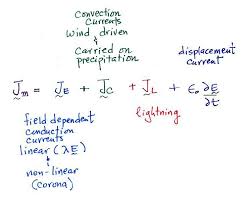 Convection
Currents
wind driven
&
Carried on
precipitation
displacement
current
J_m = J_E + J_C + J_L + ε₀ ∂E/∂t
field dependent
conduction
currents
lightning
linear (λE)
&
non-linear
(corona)